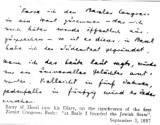 Fasse ich den Baseler Congress
in ein Wort zusammen - das ich
mich hüten werde öffentlich aus-
zusprechen - so ist es dieses: in Basel
habe ich den Judenstaat gegründet.
Wenn ich das heute laut sagte, würde
mir ein universelles Gelächter antwor-
ten. Vielleicht in fünf Jahren,
jedenfalls in fünfzig wird es Jeder
einsehen.
Entry of Herzl into his Diary, on the significance of the first
Zionist Congress, Basle: "at Basle I founded the Jewish State".
September 3, 1897